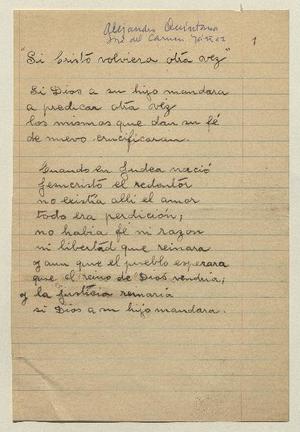 Alejandro Quintana
José del Carmen
1
"Si Cristo volviera otra vez"
Si Dios a su hijo mandara
a predicar otra vez
los mismos que dan su fé
de nuevo crucificaran.
Cuando en Judea nació
Jesucristo el redentor
no existía alli el amor
todo era perdición;
no había fé ni razon
ni libertad que reinara
y aun que el pueblo esperara
que el reino de Dios vendria;
y la justicia reinaría
si Dios a su hijo mandara.